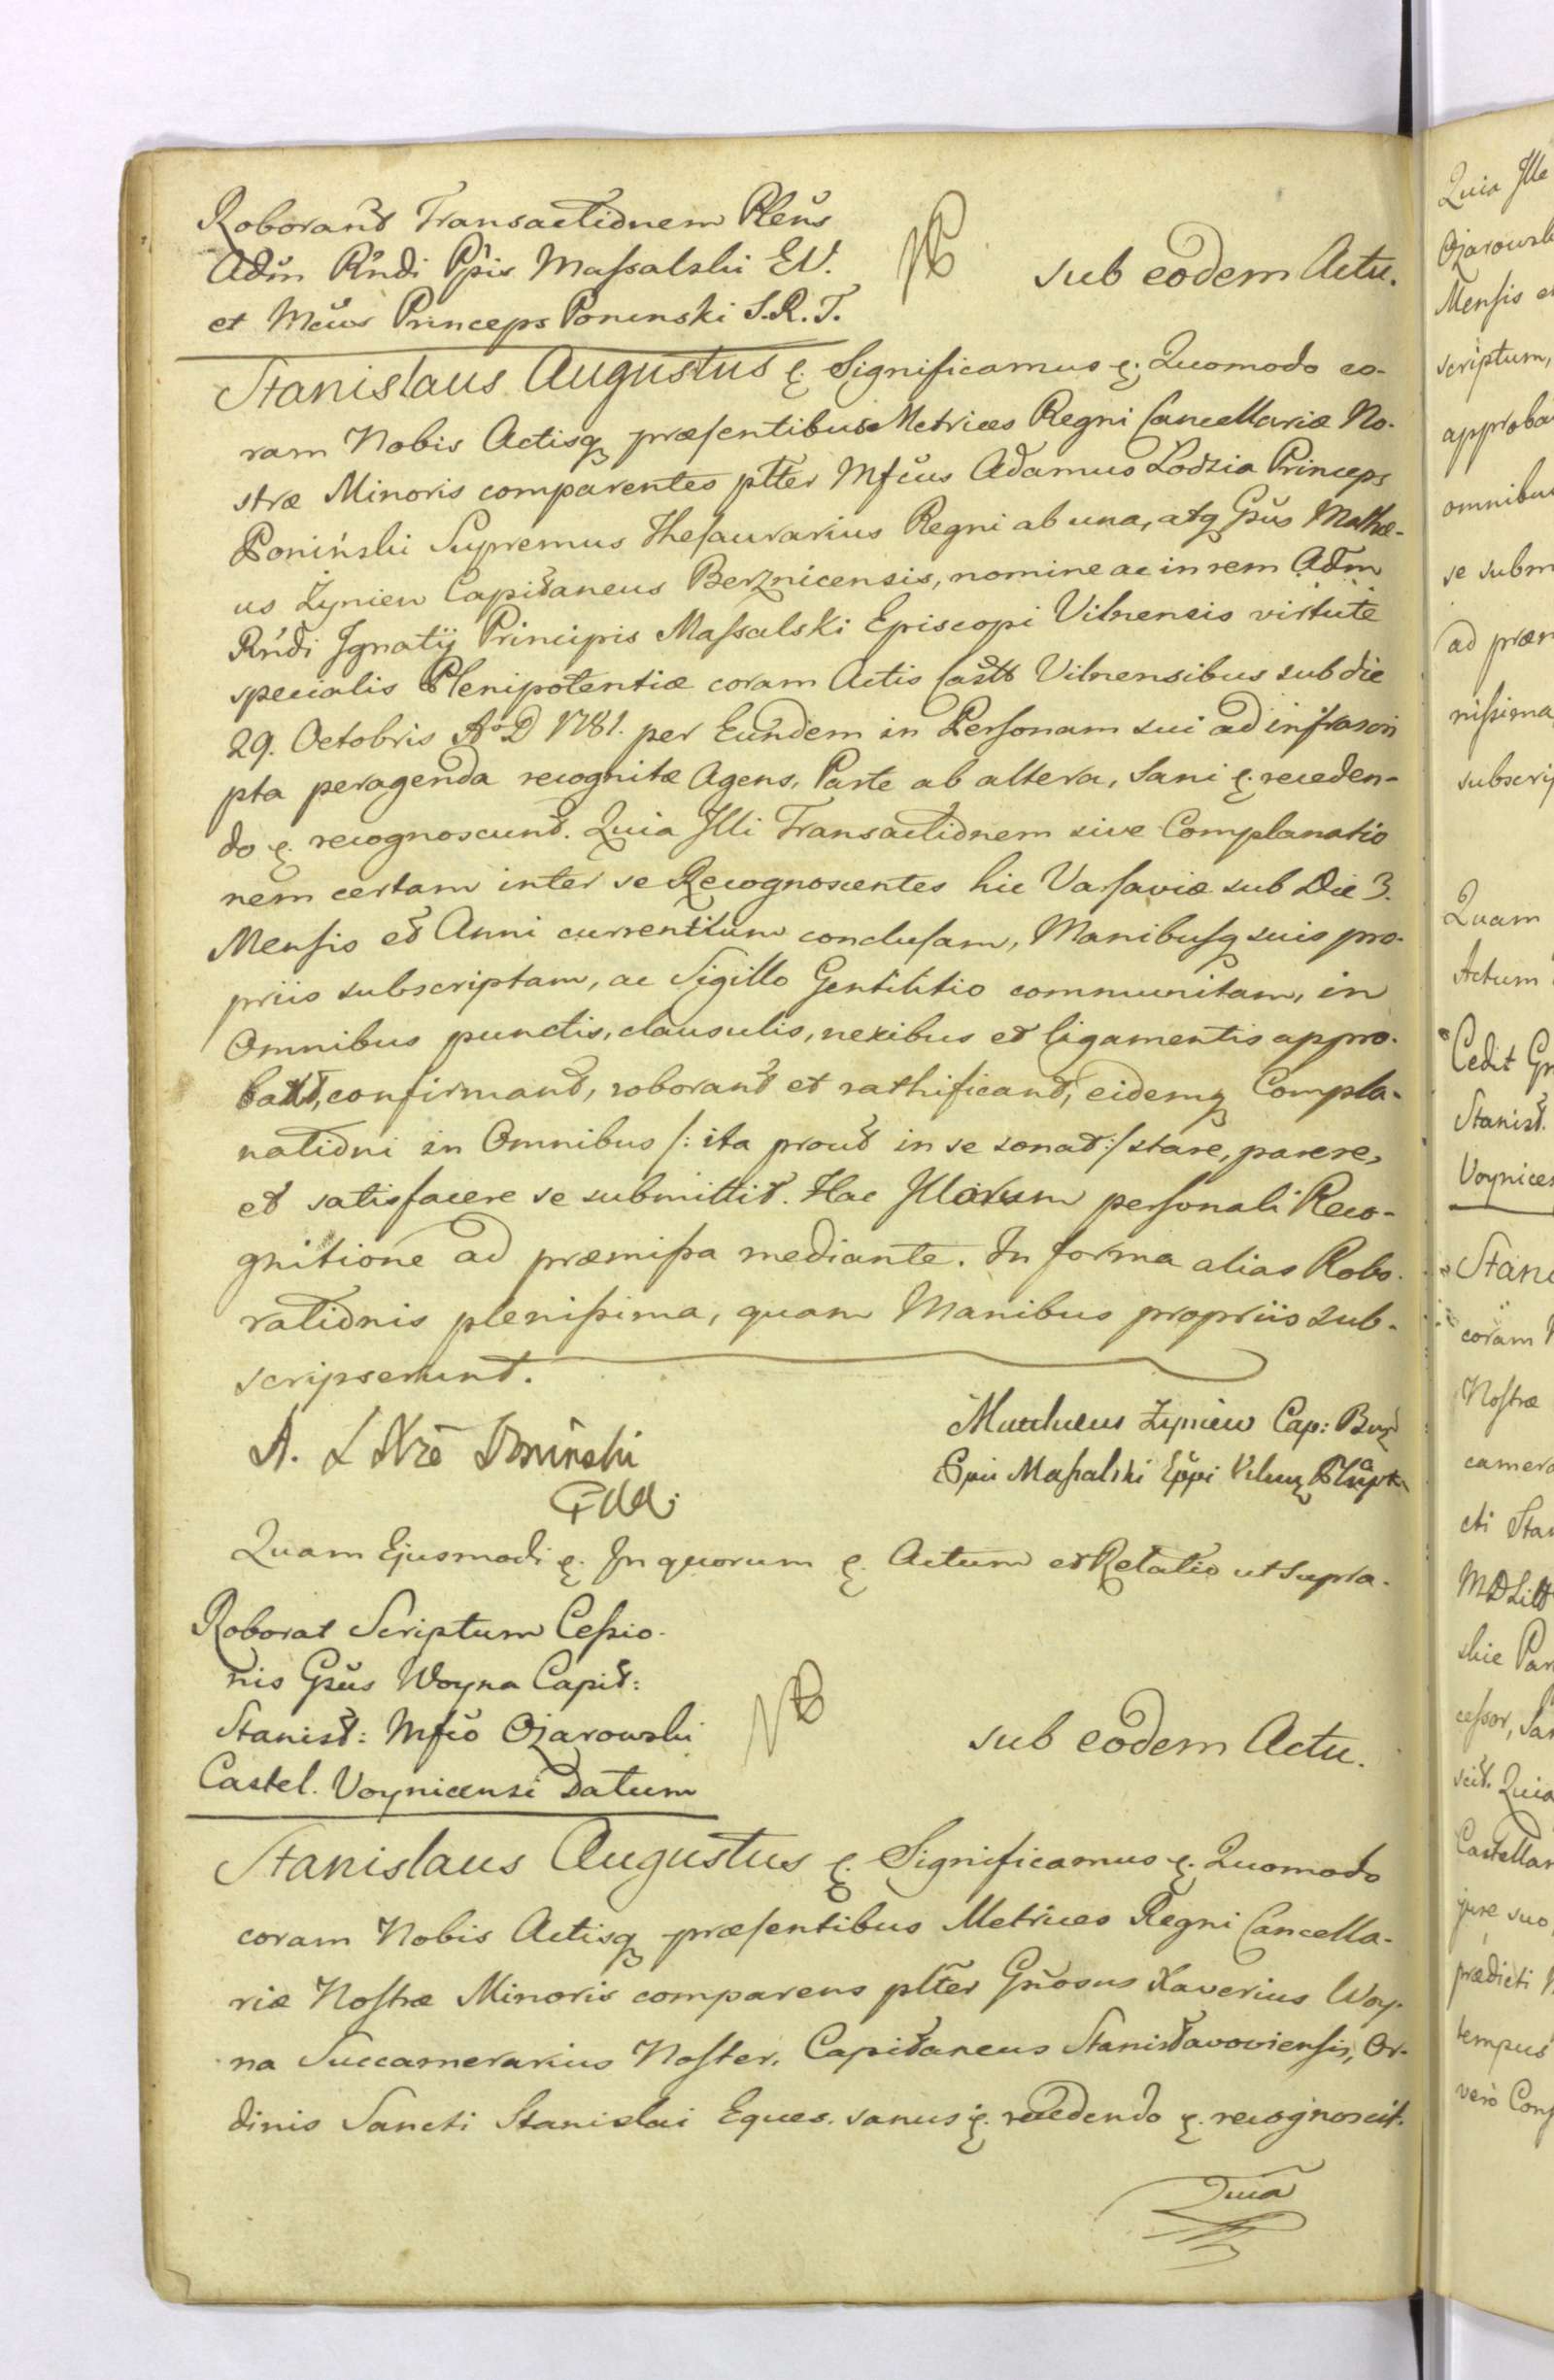 Roborant Transactionem Plenus
Adm Rndi Ppis Massalski E.V.
et Mcus Princeps Poninski S.R.T.
NB
sub eodem Actu.
Stanislaus Augustus &. Significamus &. Quomodo co-
ram Nobis Actisq præsentibus Metrices Regni Cancellariæ No-
stræ Minoris comparentes pltter Mfcus Adamus Lodzia Princeps
Poniński Supremus Thesaurarius Regni ab una, atq Gsus Mathæ-
us Żyniew Capitaneus Berznicensis, nomine ac in rem Adm
Rndi Ignatij Principis Massalski Episcopi Vilnensis virtute
specialis Plenipotentiæ coram Actis Castr Vilnensibus sub die
29. Octobris Ao D 1781. per Eundem in Personam sui ad infrascri
pta peragenda recognitæ Agens, Parte ab altera, Sani &. receden-
do &. recognoscunt. Quia Illi Transactionem sive Complanatio
nem certam inter se Recognoscentes hic Varsaviæ sub Die 3.
Mensis et Anni currentium conclusam, Manibusq suis pro-
priis subscriptam, ac Sigillo Gentilitio communitam, in
Omnibus punctis, clausulis, nexibus et ligamentis appro-
bant, confirmant, roborant et rathificant, eidemq Compla-
nationi in Omnibus /: ita prout in se sonat :/ stare, parere,
et satisfacere se submittit. Hac Illorum personali Reco-
gnitione ad præmissa mediante. In forma alias Robo-
rationis plenissima, quam Manibus propriis sub-
scripserunt.
A. L Xże Poniński
Mattheus Żyniew Cap: Berz
Massalski Eppi
Quam Ejusmodi &. In quorum &. Actum et Relatio ut supra.
Roborat Scriptum Cessio-
nis Gsus Woyna Capit:
Stanisł: Mfco Ożarowski
Castel. Voynicensi Datum
NB
sub eodem Actu.
Stanislaus Augustus &. Significamus &. Quomodo
coram Nobis Actisq præsentibus Metrices Regni Cancella-
riæ Nostræ Minoris comparens pltter Gnosus Xaverius Woy-
na Succamerarius Noster, Capitaneus Stanisławoviensis, Or-
dinis Sancti Stanislai Eques. sanus &. recedendo &. recognoscit.
Quia
Quia Ille
Ożarowsk
Mensis e
scriptum,
approba
omnibus
se subm
ad præm
nissima
subscrip
Quam
Actum
Cedit G
Stanisł.
Voynice
Stani
coram
Nostræ
camera
cti Sta
cessor, Sa
scit. Quia
Castellan
jure suo,
prædicti
tempus
vero Con